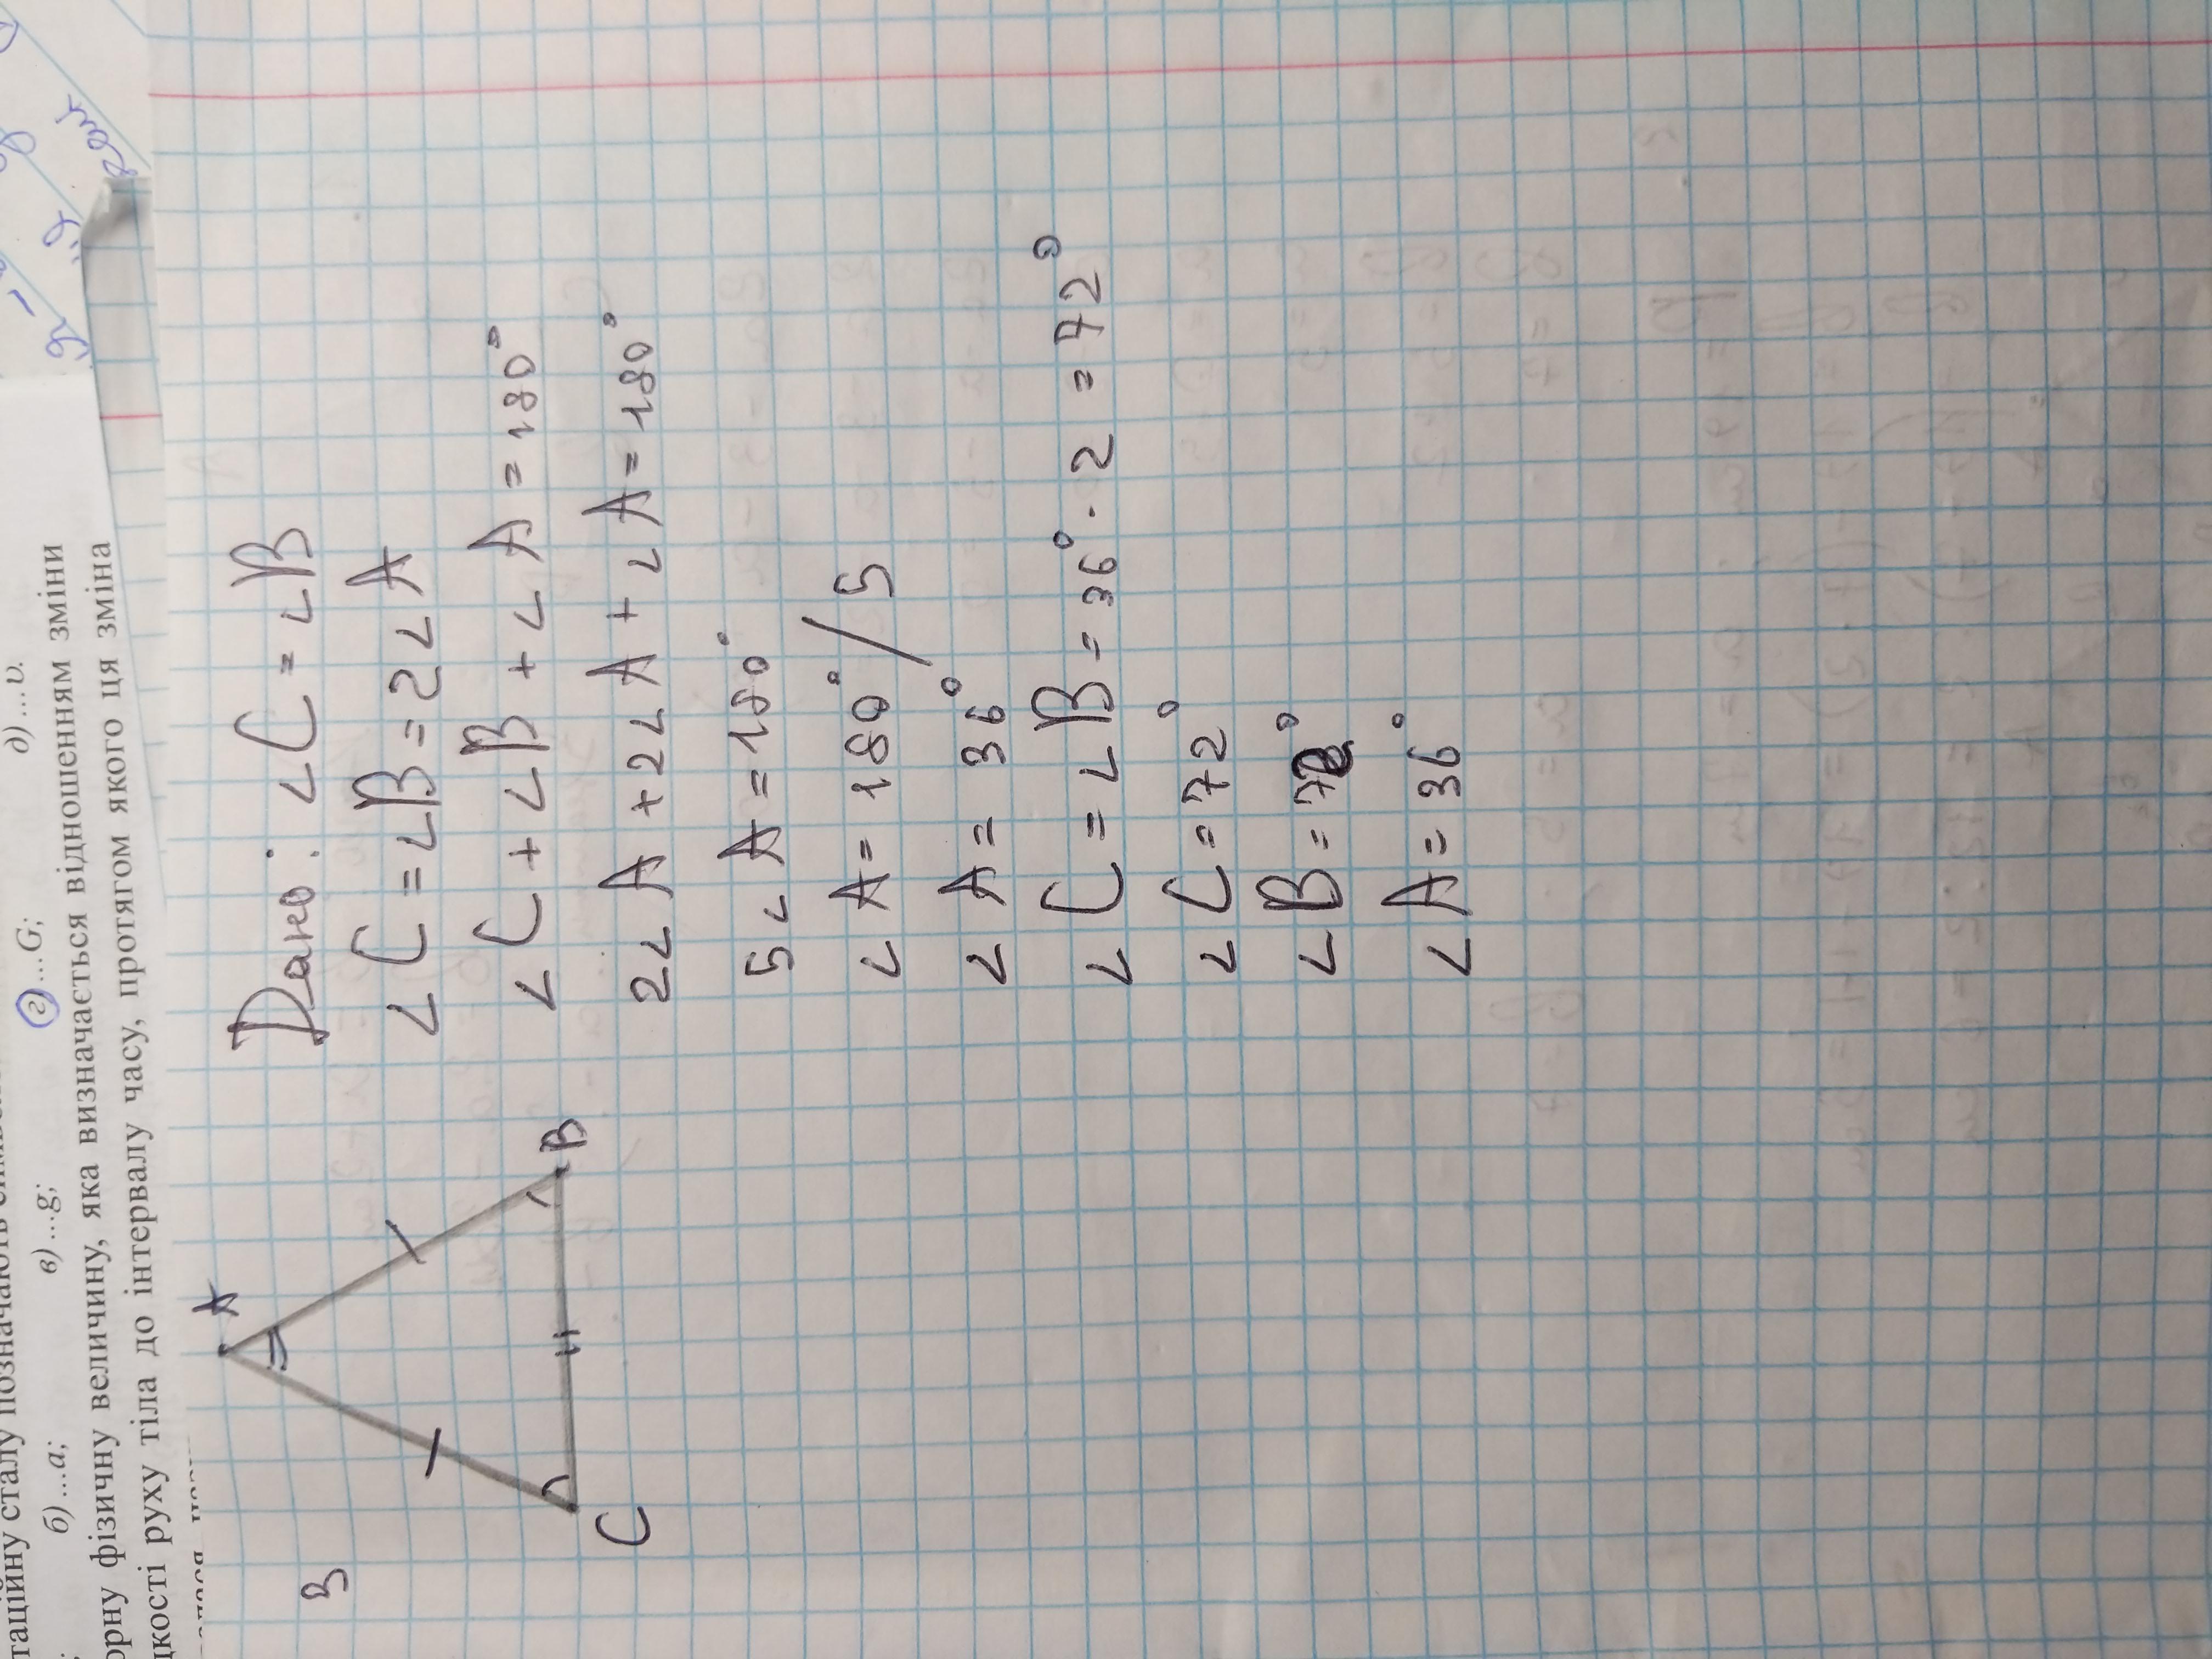 д) ...v.
г) ...G;
в) ...g;
б) ...a;
таційну сталу позначають
орну фізичну величину, яка визначається відношенням зміни
дкості руху тіла до інтервалу часу, протягом якого ця зміна
3
A
B
C
Дано: ∠C = ∠B
∠C = ∠B = 2∠A
∠C + ∠B + ∠A = 180°
2∠A + 2∠A + ∠A = 180°
5∠A = 180°
∠A = 180° / 5
∠A = 36°
∠C = ∠B = 36° · 2 = 72°
∠C = 72°
∠B = 72°
∠A = 36°